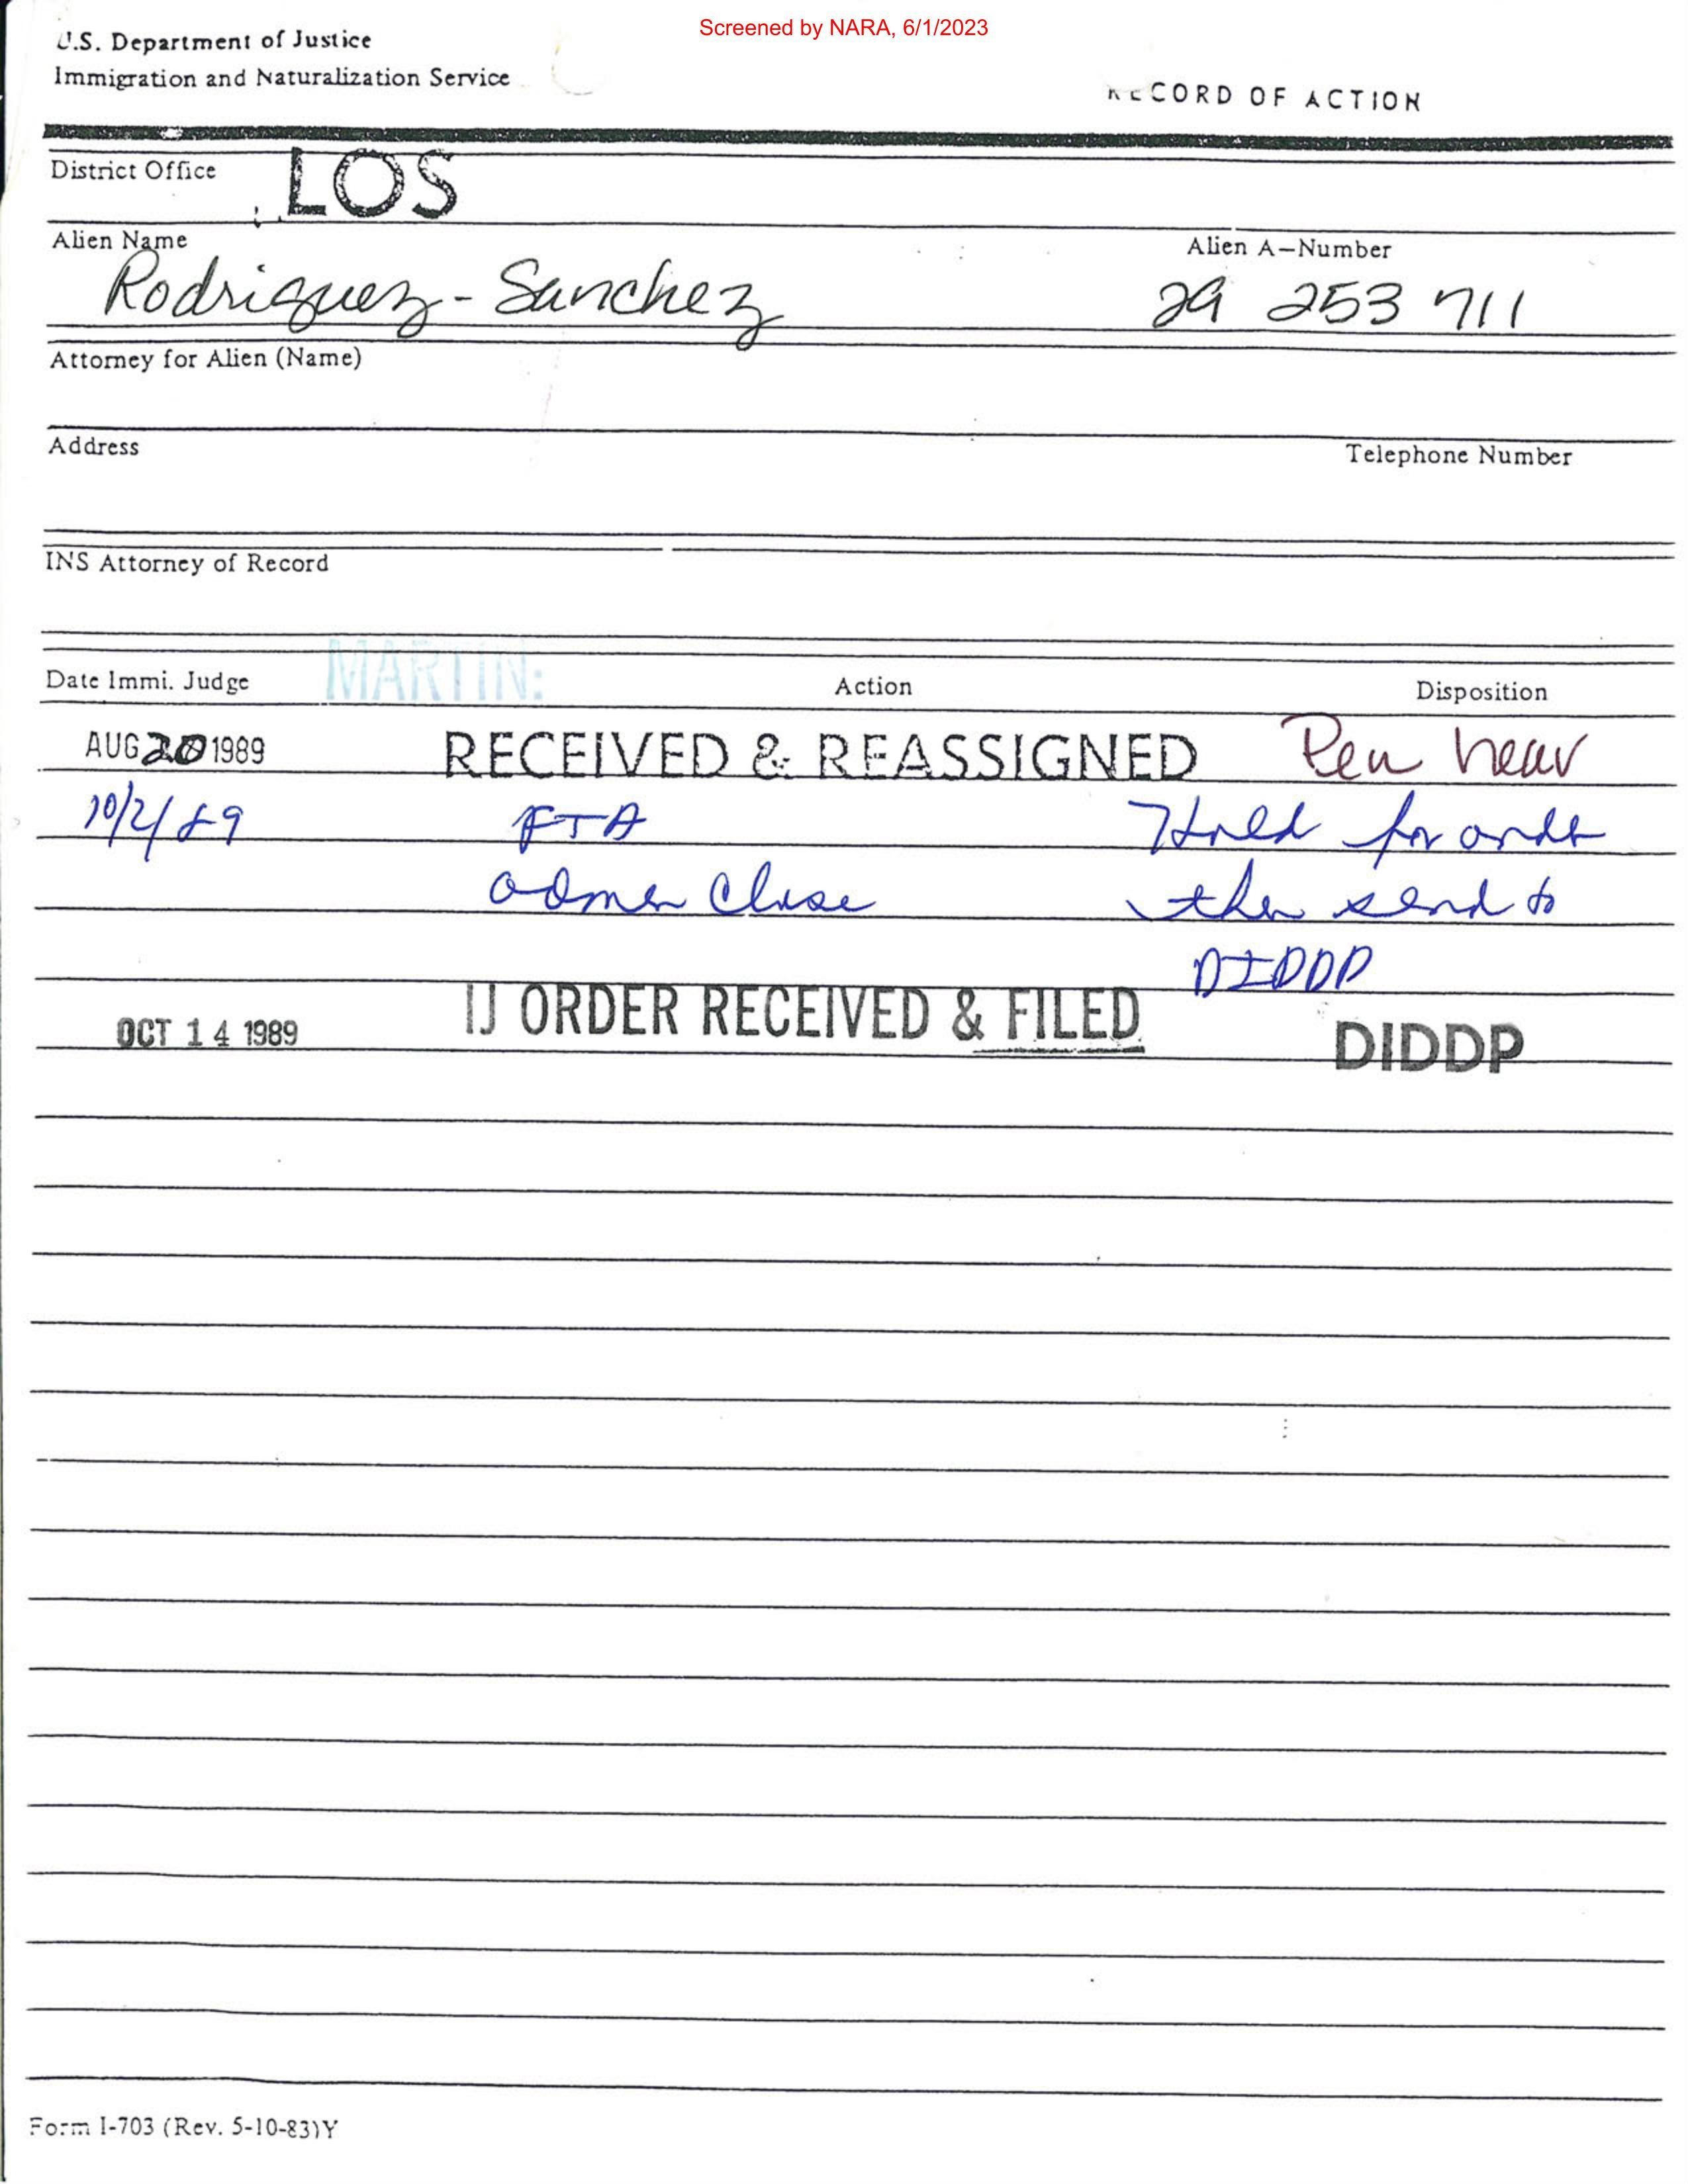 Screened by NARA, 6/1/2023
U.S. Department of Justice
Immigration and Naturalization Service
RECORD OF ACTION
District Office LOS
Alien Name Alien A-Number
Rodriguez - Sanchez 29 253 711
Attorney for Alien (Name)
Address Telephone Number
INS Attorney of Record
MARTIN:
Date Immi. Judge Action Disposition
AUG 20 1989 RECEIVED & REASSIGNED Pen hear
10/2/89 FTA Hold for order
admin Close then send to
DIDDP
OCT 14 1989 IJ ORDER RECEIVED & FILED DIDDP
Form I-703 (Rev. 5-10-83)Y